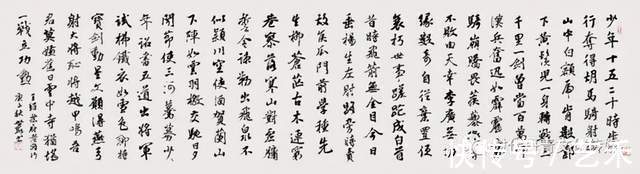 少年十五二十時步
行奪得胡馬騎射殺
山中白額虎肯數鄴
下黃鬚兒一身轉戰三
千里一劍曾當百萬師
漢兵奮迅如霹靂虜
騎崩騰畏蒺藜衛青
不敗由天幸李廣無功
緣數奇自從棄置便
衰朽世事蹉跎成白首
昔時飛箭無全目今日
垂楊生左肘路旁時賣
故侯瓜門前學種先
生柳蒼茫古木連窮
巷寥落寒山對虛牖
誓令疏勒出飛泉不
似潁川空使酒賀蘭山
下陣如雲羽檄交馳日夕
聞節使三河募年少
詔書五道出將軍
試拂鐵衣如雪色聊持
寶劍動星文願得燕弓
射大將恥將越甲鳴吾
君莫嫌舊日雲中守猶堪
一戰立功勳
庚子秋
快传号/艺术